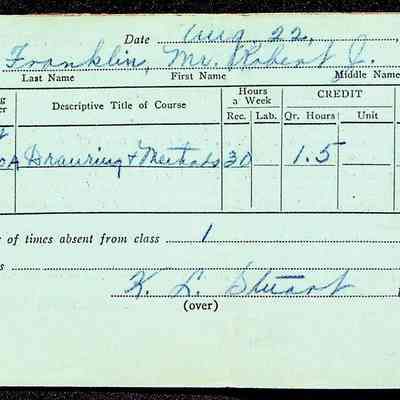 Date Aug. 22,
Franklin, Mr. Robert J.
Last Name First Name Middle Name
Descriptive Title of Course Hours a Week CREDIT
Rec. Lab. Qr. Hours Unit
Drawing & Methods 30 1.5
of times absent from class 1
K. L. Stuart
(over)